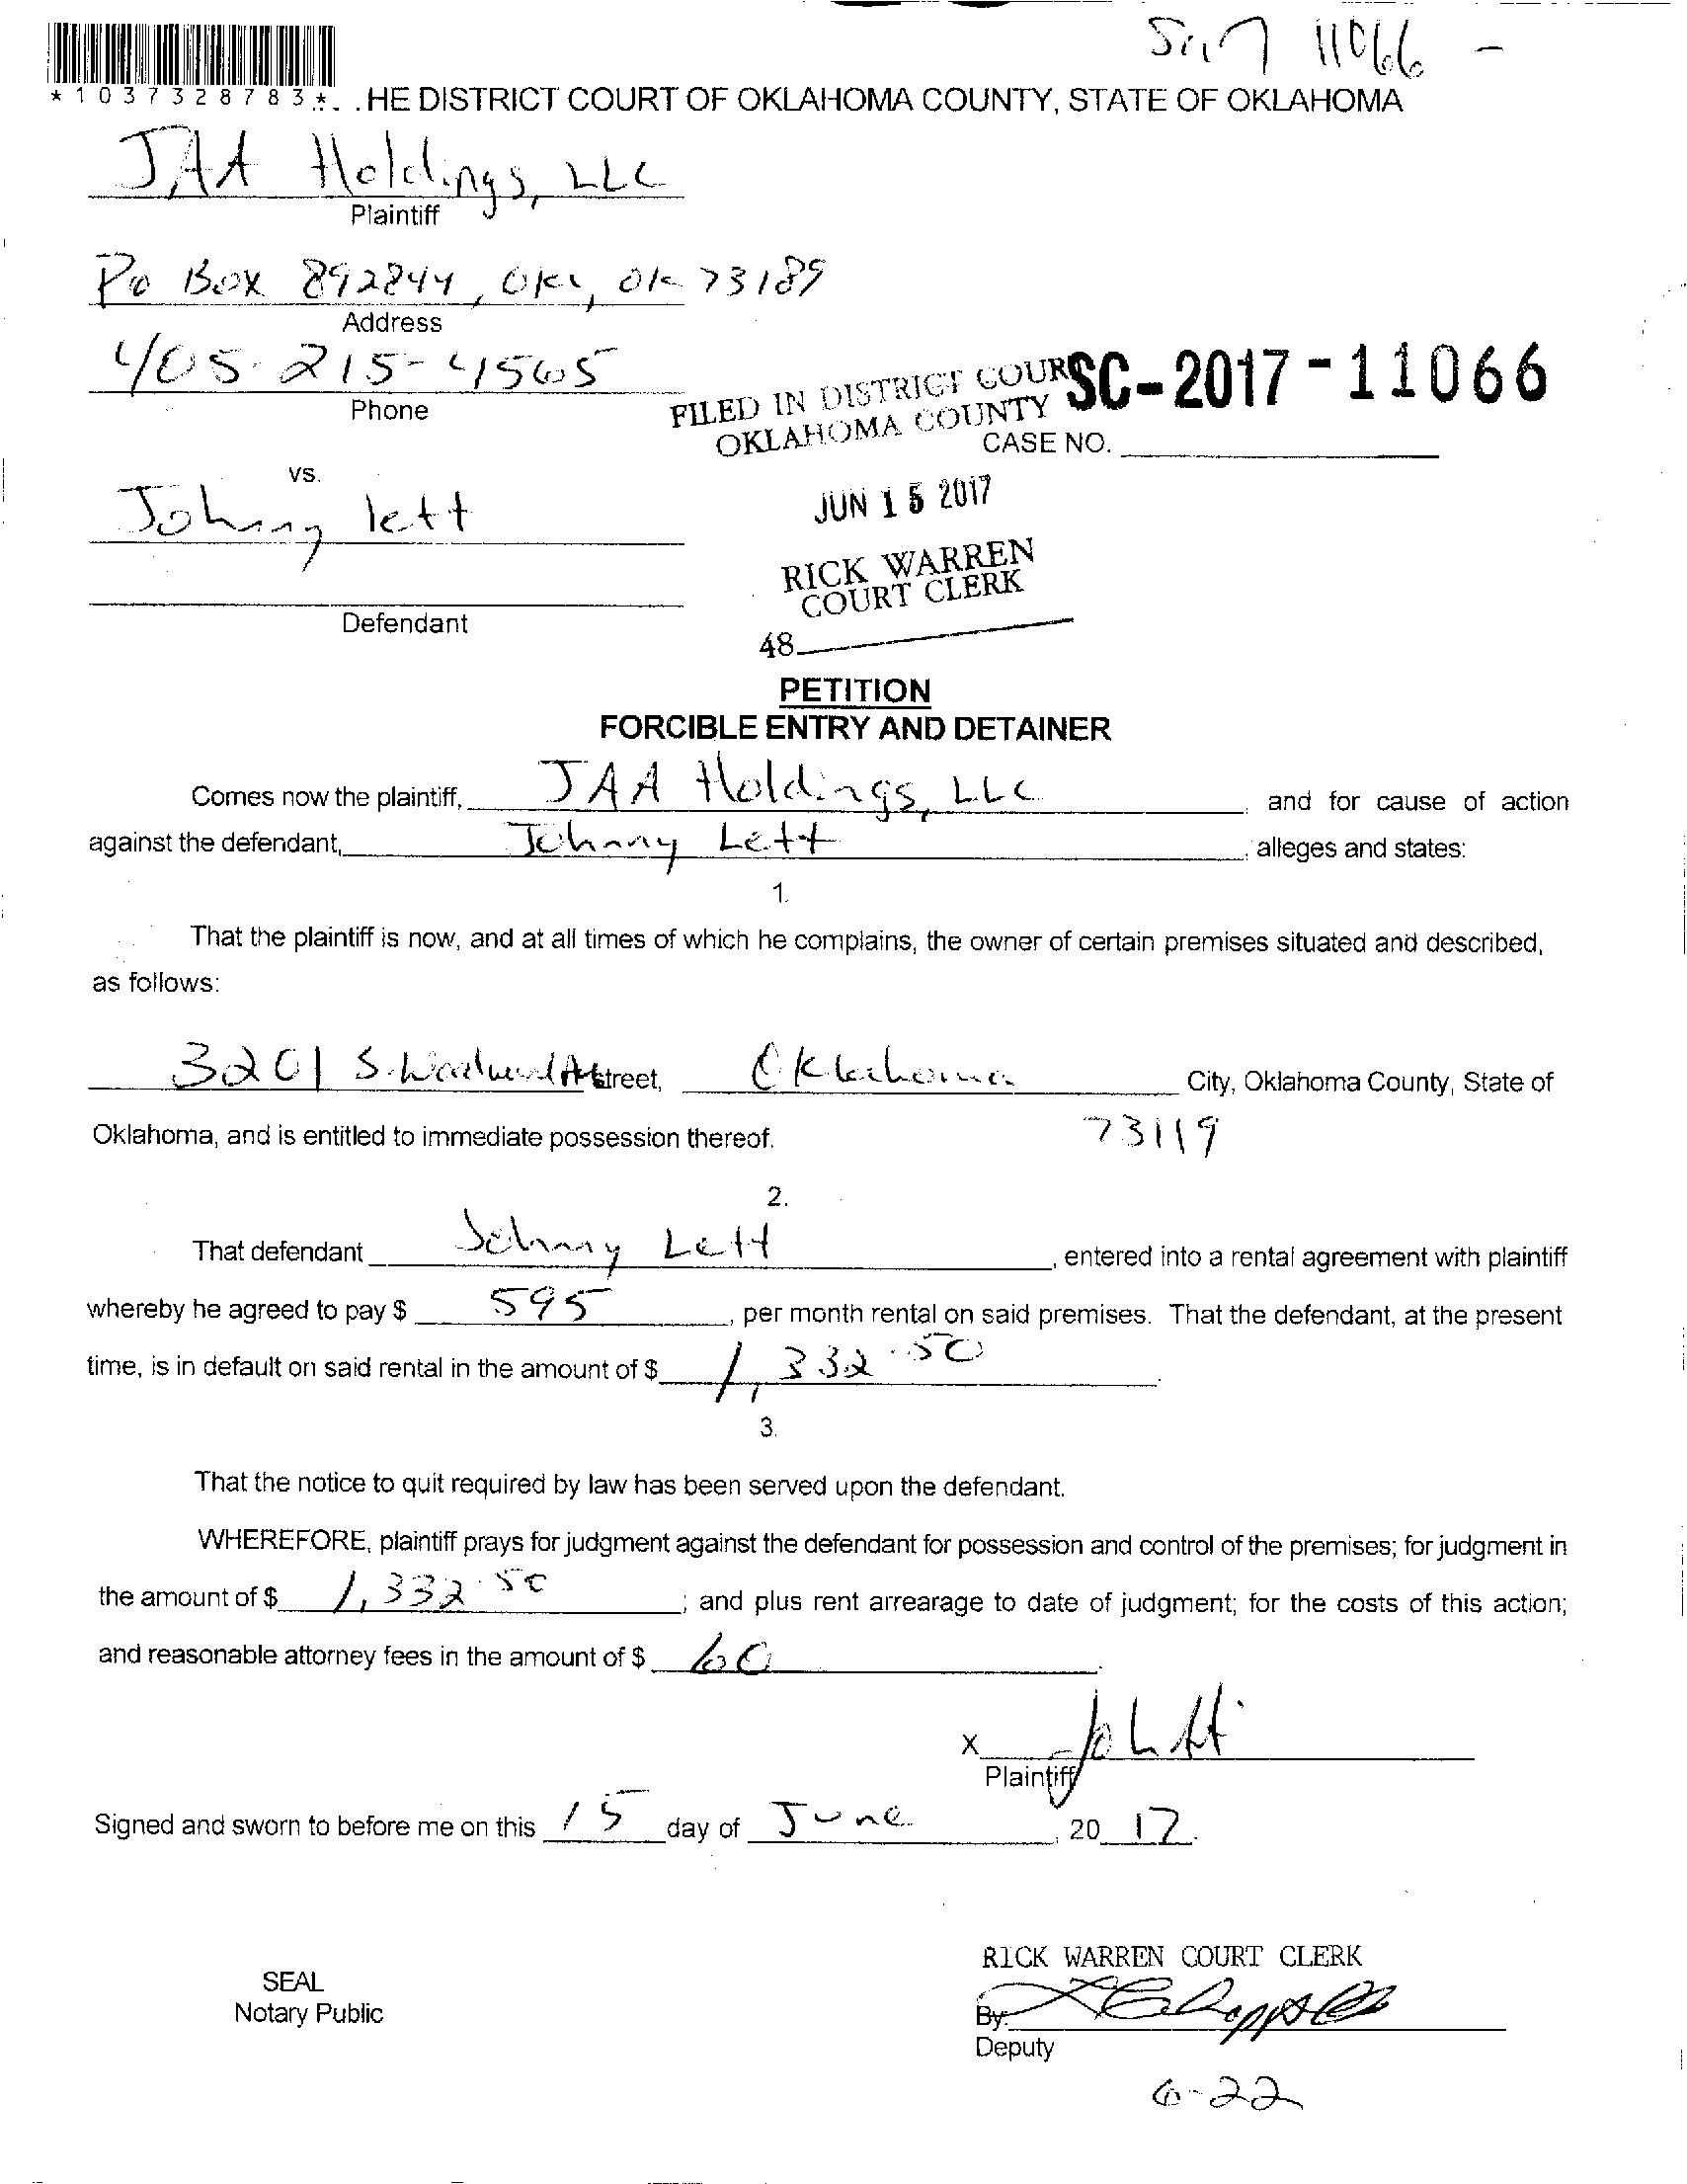 SC17 11066 -
*1037328783*. .HE DISTRICT COURT OF OKLAHOMA COUNTY, STATE OF OKLAHOMA
JAA Holdings, LLC
Plaintiff
Po Box 892844, OKC, OK 73189
Address
405-215-4565
Phone
FILED IN DISTRICT COUR
OKLAHOMA COUNTY
SC-2017-11066
CASE NO.
vs.
Johnny lett
JUN 15 2017
RICK WARREN
COURT CLERK
Defendant
48
PETITION
FORCIBLE ENTRY AND DETAINER
Comes now the plaintiff, JAA Holdings, LLC and for cause of action
against the defendant, Johnny Lett alleges and states:
1.
That the plaintiff is now, and at all times of which he complains, the owner of certain premises situated and described,
as follows:
3201 S. Woodward Street, Oklahoma City, Oklahoma County, State of
Oklahoma, and is entitled to immediate possession thereof. 73119
2.
That defendant Johnny Lett, entered into a rental agreement with plaintiff
whereby he agreed to pay $ 595, per month rental on said premises. That the defendant, at the present
time, is in default on said rental in the amount of $ 1,332.50.
3.
That the notice to quit required by law has been served upon the defendant.
WHEREFORE, plaintiff prays for judgment against the defendant for possession and control of the premises; for judgment in
the amount of $ 1,332.50; and plus rent arrearage to date of judgment; for the costs of this action;
and reasonable attorney fees in the amount of $ 60.
X
Plaintiff
Signed and sworn to before me on this 15 day of June, 20 17.
RICK WARREN COURT CLERK
SEAL
Notary Public
By:
Deputy
6-22